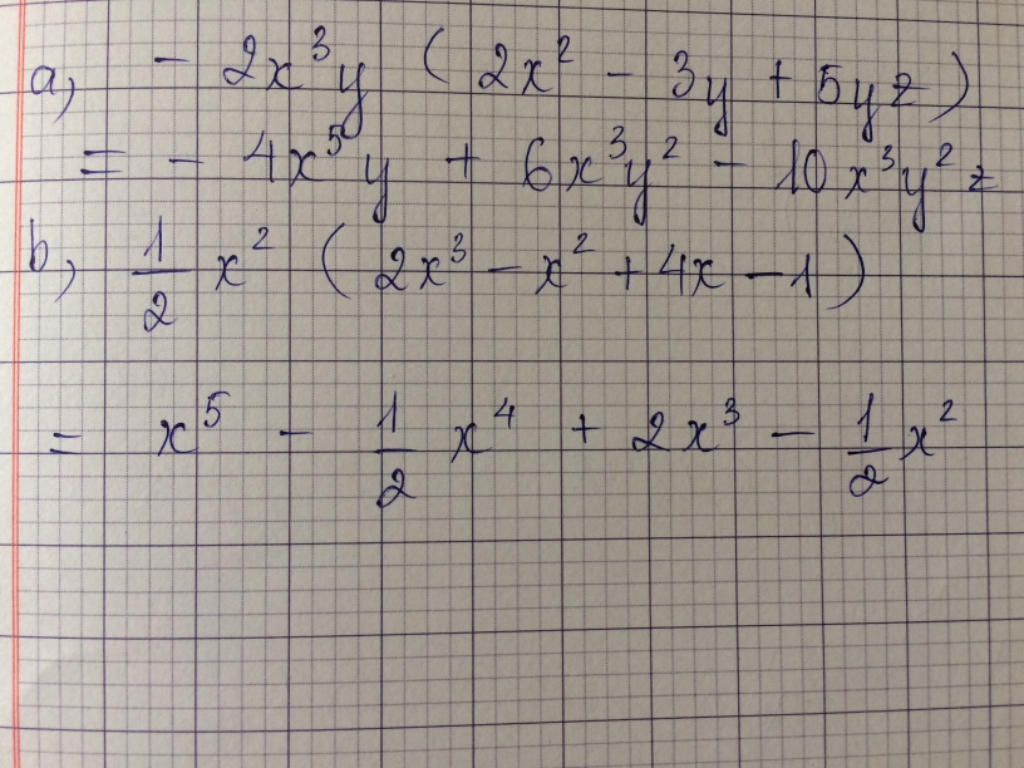 a, - 2x³y ( 2x² - 3y + 5yz )
= - 4x⁵y + 6x³y² - 10x³y²z
b, 1/2 x² ( 2x³ - x² + 4x - 1 )
= x⁵ - 1/2 x⁴ + 2x³ - 1/2 x²